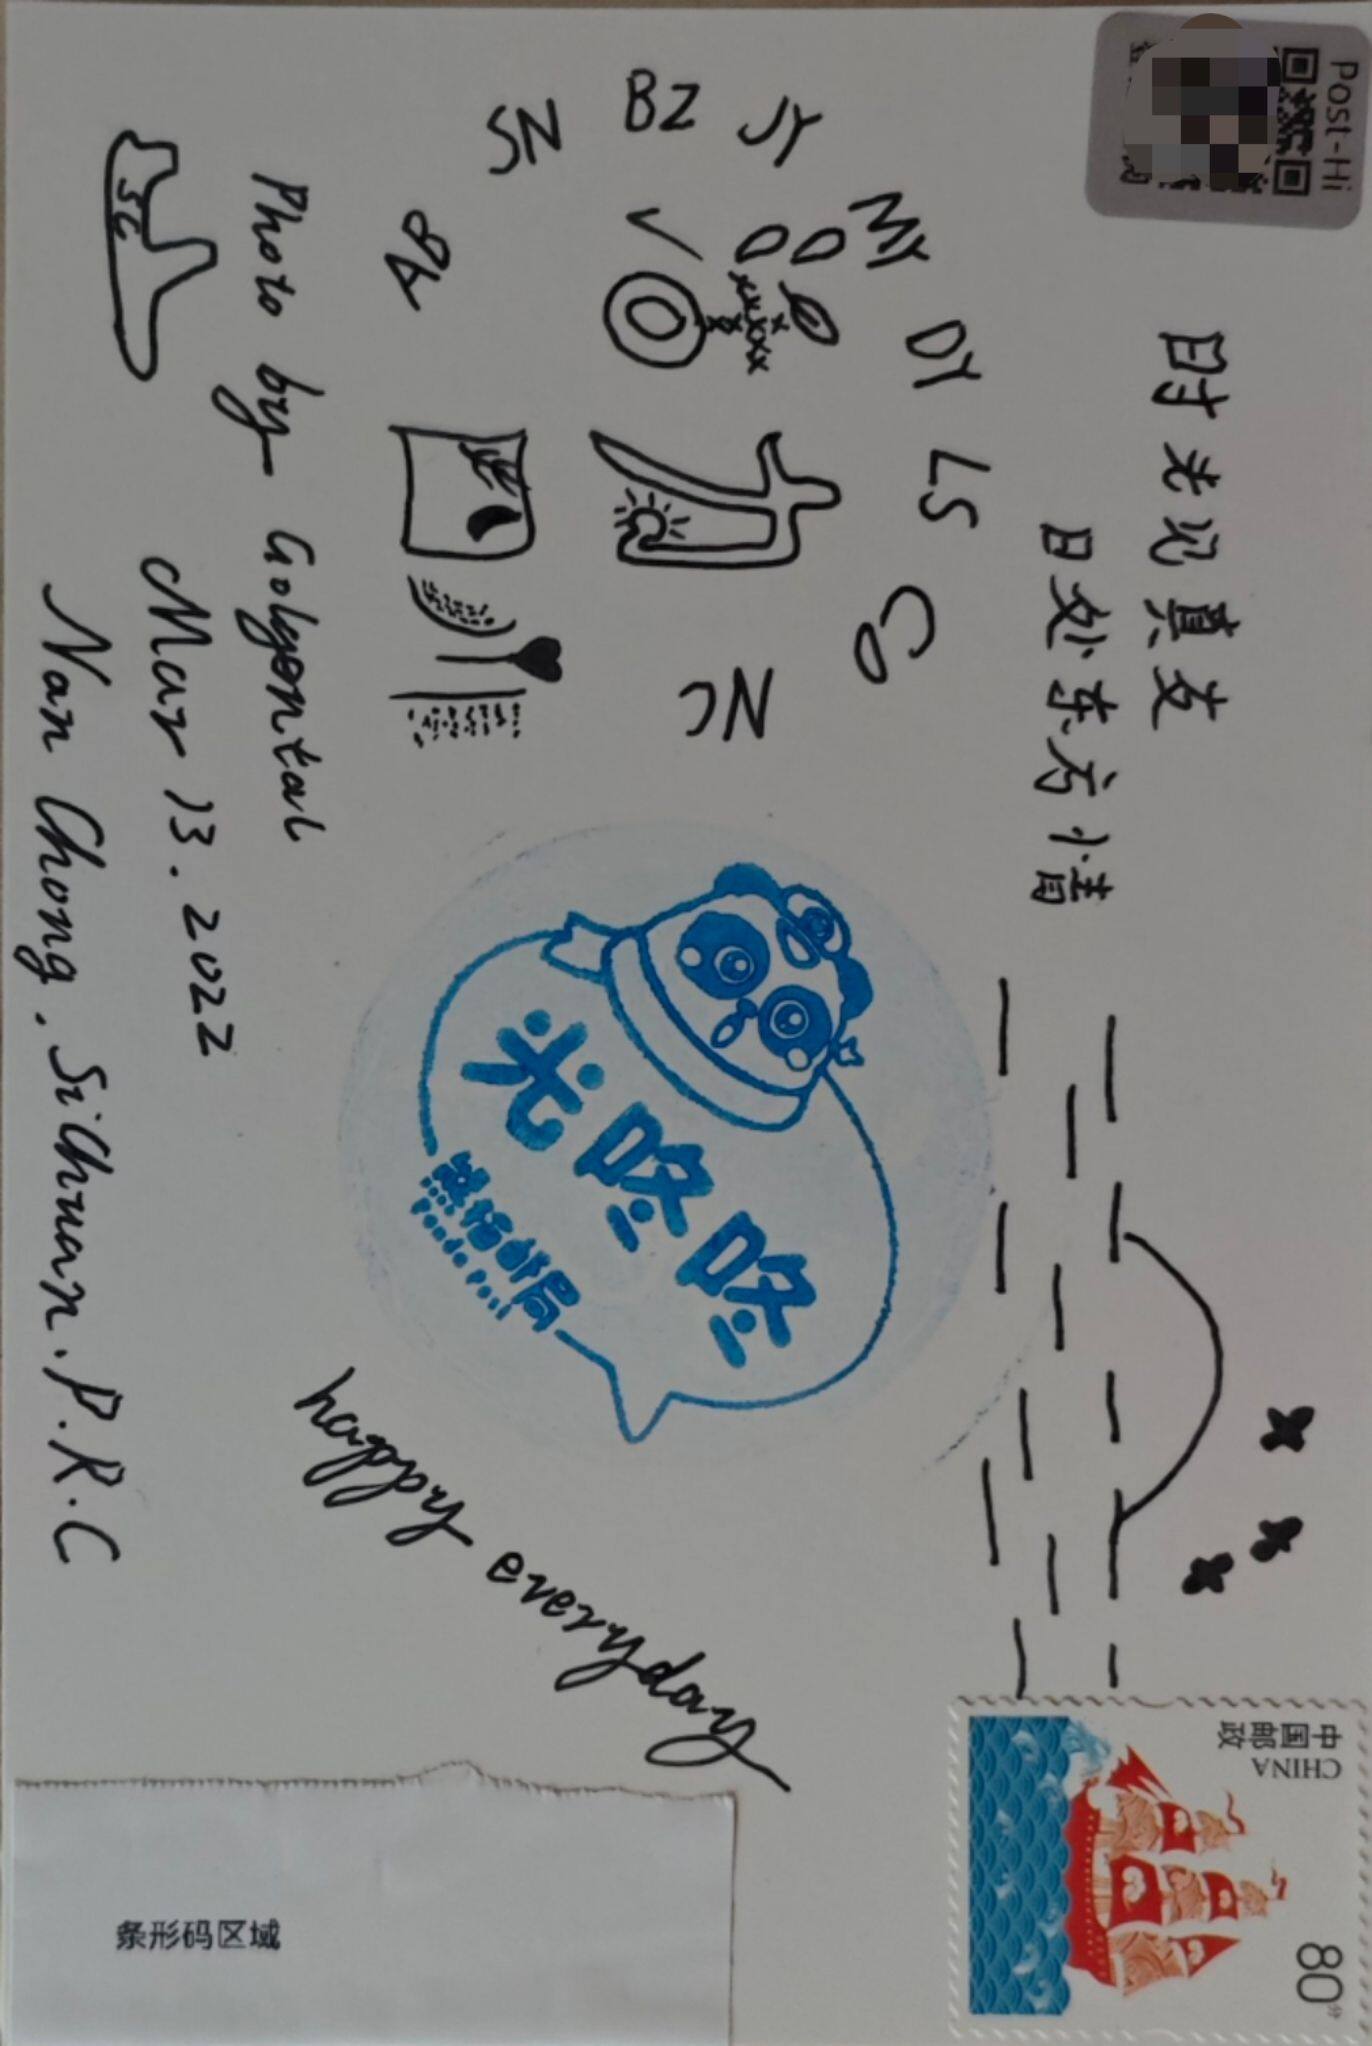 Post-Hi
时光见真友
日处东方情
SN
BZ
JY
MY
DY
LS
CD
NC
AB
SC
Photo by Golgental
Mar 13. 2022
Nan Chong. SiChuan. P.R.C
光咚咚
熊猫邮局
Panda Post
happy everyday
中国邮政
CHINA
80分
条形码区域